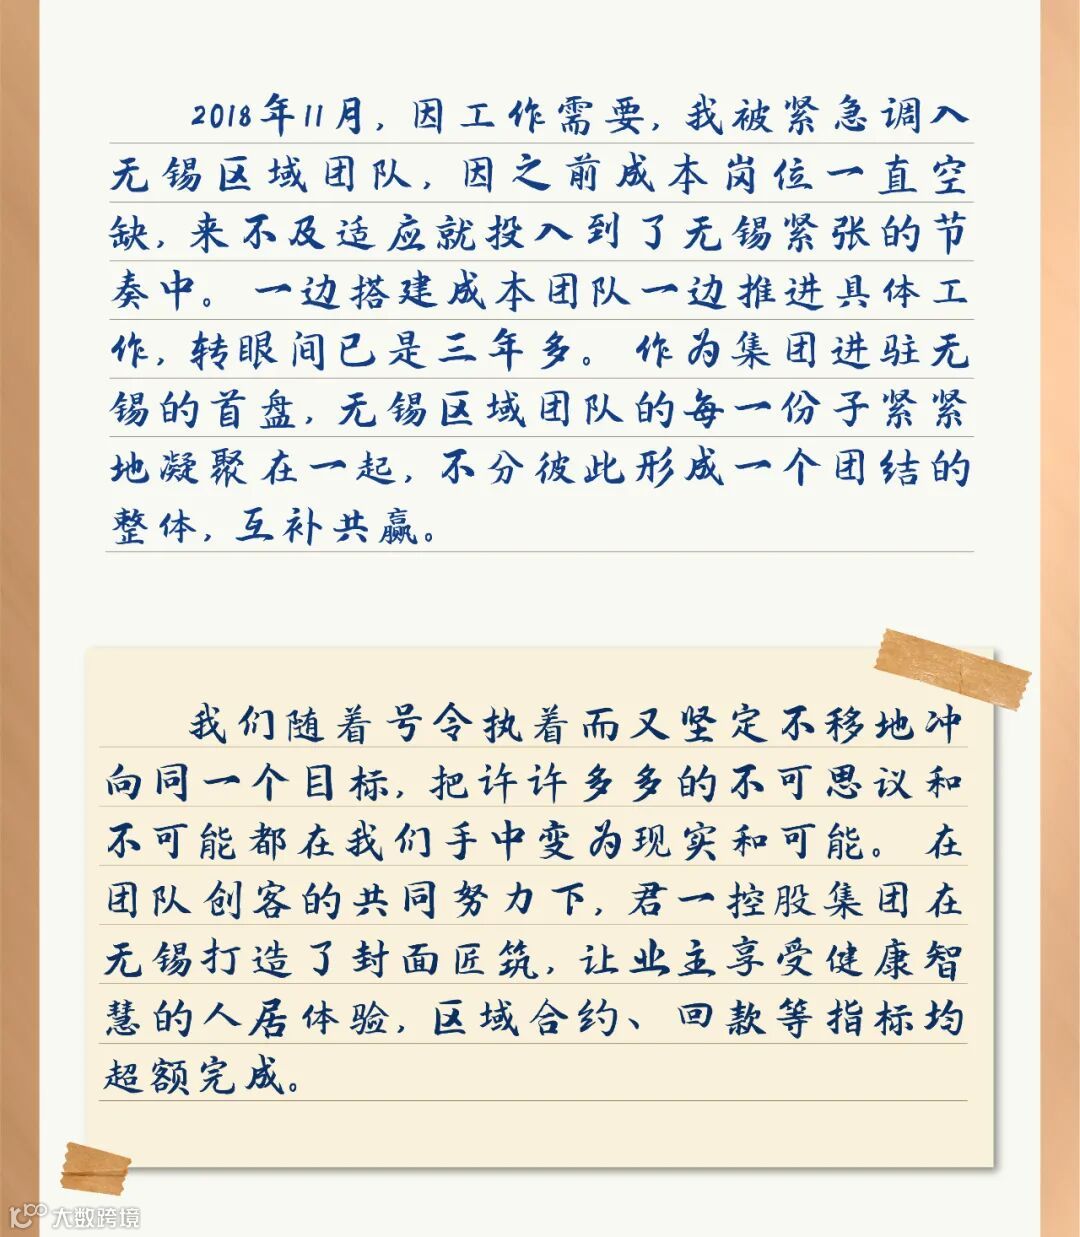 2018年11月,因工作需要,我被紧急调入
无锡区域团队,因之前成本岗位一直空
缺,来不及适应就投入到了无锡紧张的节
奏中。一边搭建成本团队一边推进具体工
作,转眼间已是三年多。作为集团进驻无
锡的首盘,无锡区域团队的每一份子紧紧
地凝聚在一起,不分彼此形成一个团结的
整体,互补共赢。
我们随着号令执着而又坚定不移地冲
向同一个目标,把许许多多的不可思议和
不可能都在我们手中变为现实和可能。在
团队创客的共同努力下,君一控股集团在
无锡打造了封面匠筑,让业主享受健康智
慧的人居体验,区域合约、回款等指标均
超额完成。
大数跨境